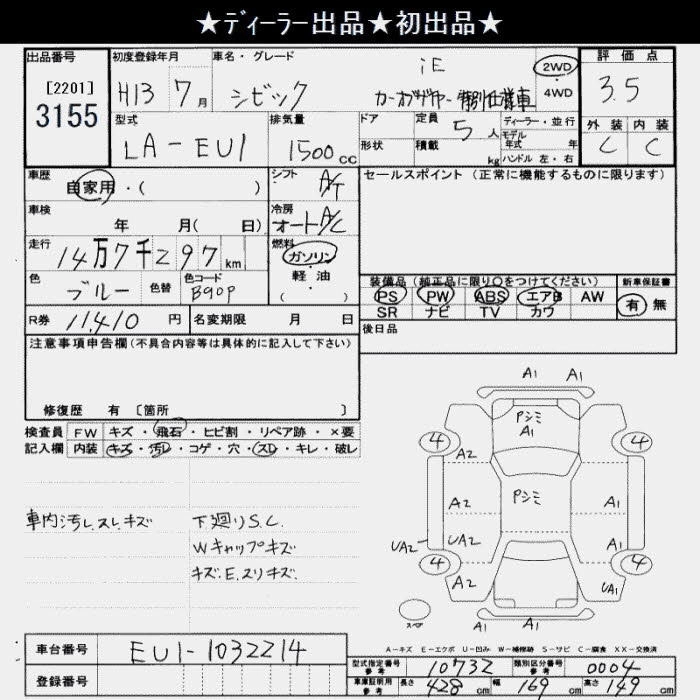 ★ディーラー出品★初出品★
出品番号 初度登録年月 車名・グレード 評価点
[2201] 3155
H13 7月 シビック iE カーオブザイヤー特別仕様車 2WD・4WD 3.5
型式 排気量 ドア 定員 ディーラー・並行 外装 内装
LA-EU1 1500cc 5人 モデル年式 年 C C
形状 積載 kg ハンドル 左・右
車歴 自家用・( ) シフト A/T セールスポイント(正常に機能するものに限ります)
車検 年 月( 日) 冷房 オートA/C
走行 14万7千297km 燃料 ガソリン・軽油・( )
色 ブルー 色替 色コード B90P
装備品(純正品に限り○をつけてください) 新車保証書
PS PW ABS エアB AW 有・無
SR ナビ TV カワ
R券 11,410円 名変期限 月 日 後日品
注意事項申告欄(不具合内容等は具体的に記入して下さい)
修復歴 有 [箇所 ]
検査員 FW キズ・飛石・ヒビ割・リペア跡・×要
記入欄 内装 キズ・汚レ・コゲ・穴・スレ・キレ・破レ
車内汚レ.スレ.キズ 下廻りS.C.
Wキャップキズ
キズ.E.スリキズ.
A1 A1
Pシミ
A1
4 4
A2
A2 Pシミ A1
UA2 A1
4 4
A2 UA1
A1 A1
スペア
A-キズ E-エクボ U-凹み W-補修跡 S-サビ C-腐食 XX-交換済
車台番号 EU1-1032214
登録番号
型式指定番号 参考 10732 類別区分番号 参考 0004
車庫証明用 参考 長さ 428cm 幅 169cm 高さ 149cm